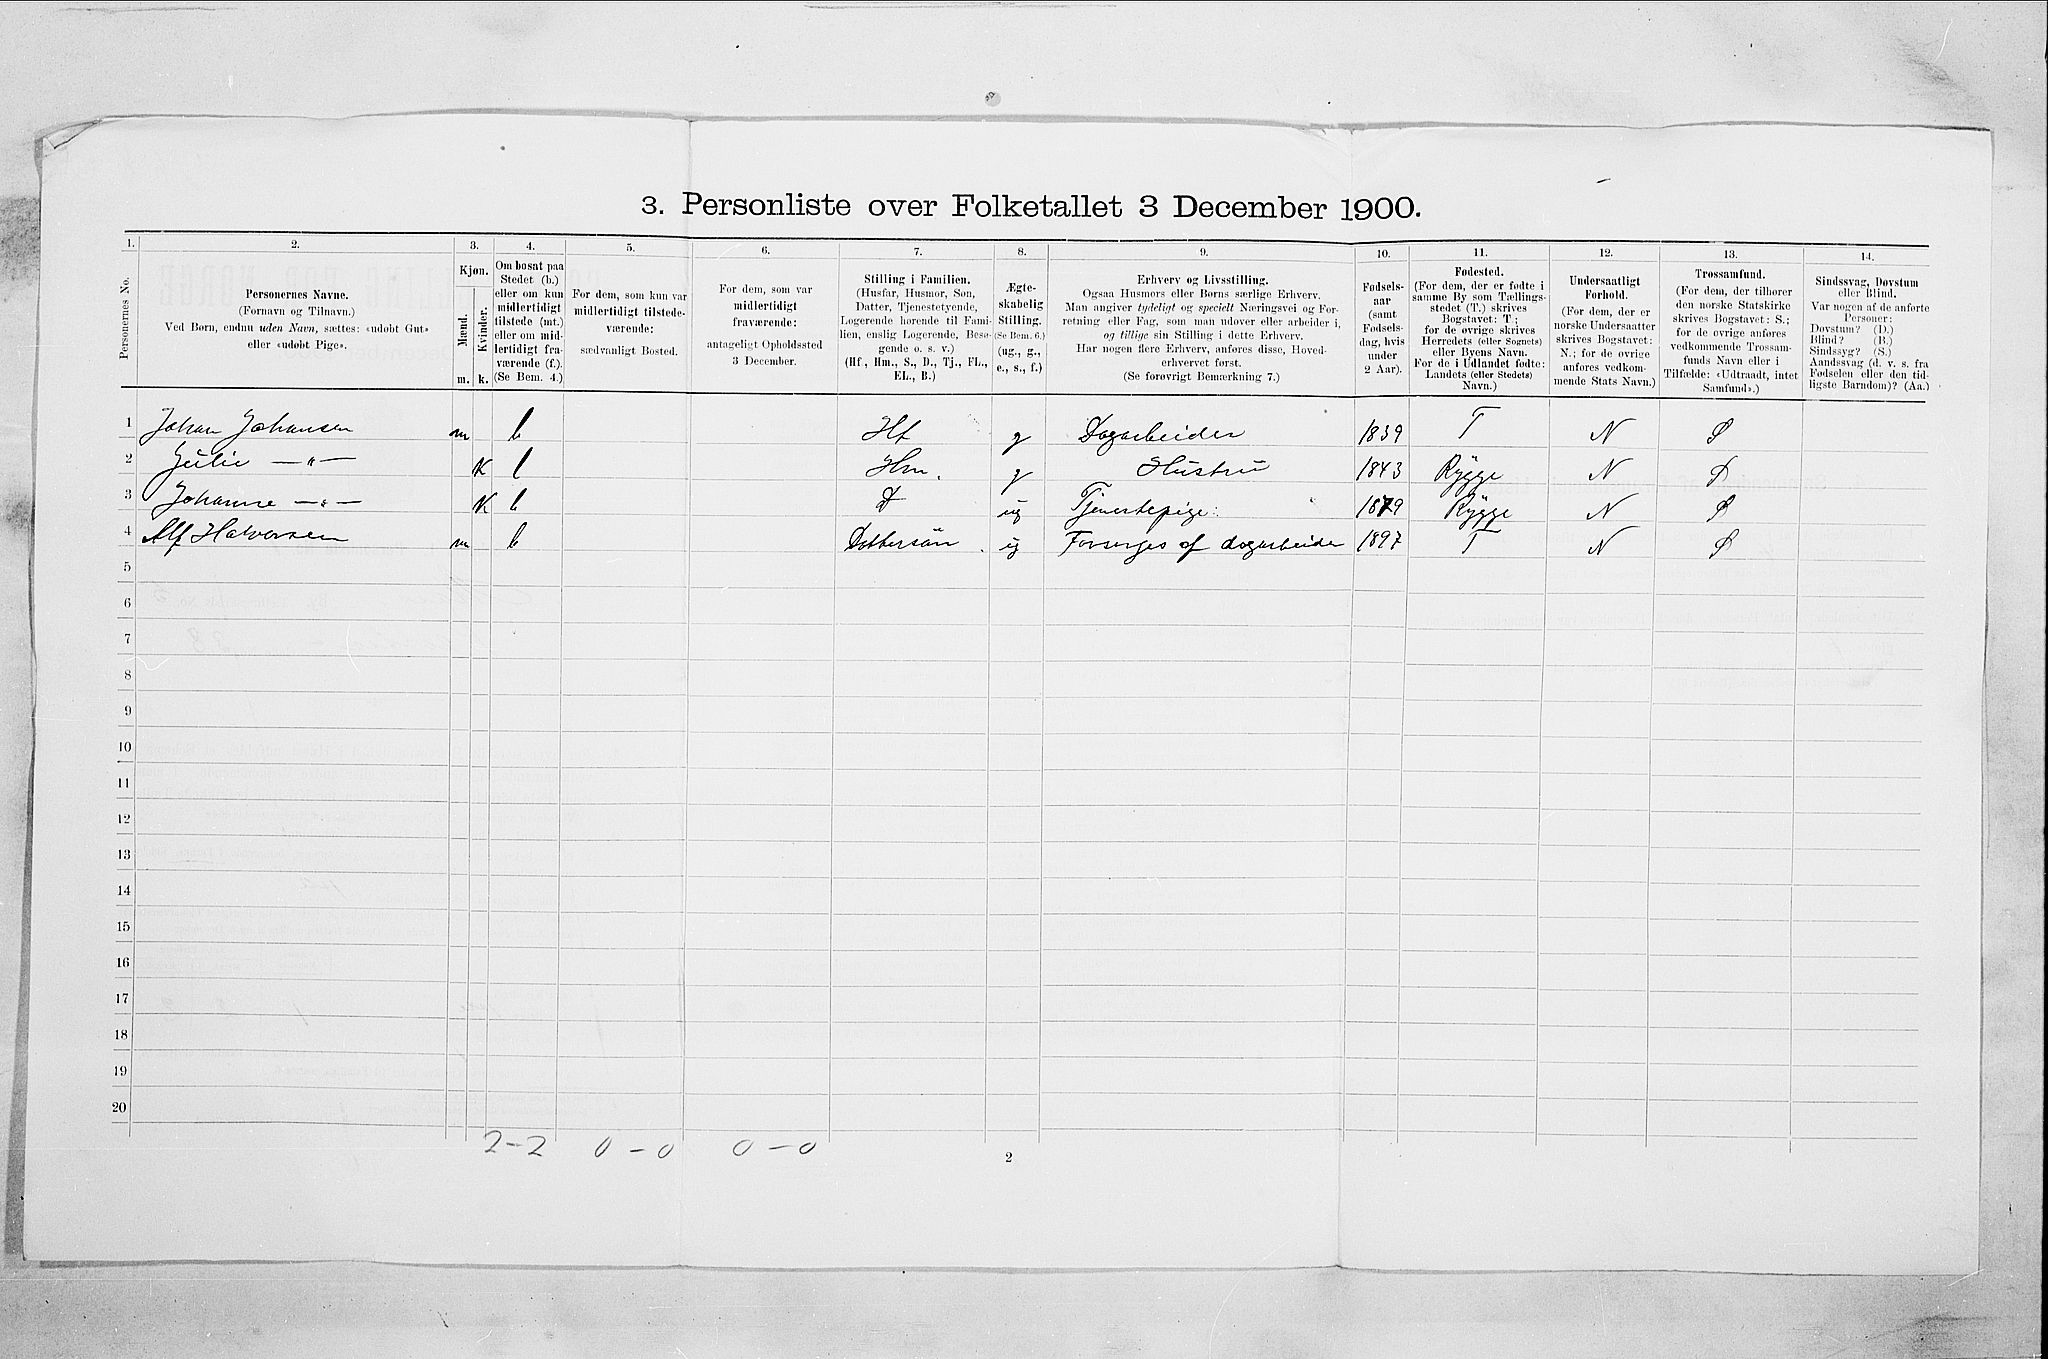 3. Personliste over Folketallet 3 December 1900.
1. 2. 3. 4. 5. 6. 7. 8. 9. 10. 11. 12. 13. 14.
Personernes No.
Personernes Navne.
(Fornavn og Tilnavn.)
Ved Børn, endnu uden Navn, sættes: «udøbt Gut»
eller «udøbt Pige».
Kjøn.
Mænd.
Kvinder.
m. k.
Om bosat paa
Stedet (b.)
eller om kun
midlertidigt
tilstede (mt.)
eller om mid-
lertidigt fra-
værende (f.).
(Se Bem. 4.)
For dem, som kun var
midlertidigt tilstede-
værende:
sædvanligt Bosted.
For dem, som var
midlertidigt
fraværende:
antageligt Opholdssted
3 December.
Stilling i Familien.
(Husfar, Husmor, Søn,
Datter, Tjenestetyende,
Logerende hørende til Fami-
lien, enslig Logerende, Besø-
gende o. s. v.)
(Hf., Hm., S., D., Tj., FL.,
EL., B.)
Ægte-
skabelig
Stilling.
(Se Bem. 6.)
(ug., g.,
e., s., f.)
Erhverv og Livsstilling.
Ogsaa Husmors eller Børns særlige Erhverv.
Man angiver tydeligt og specielt Næringsvei og For-
retning eller Fag, som man udover eller arbeider i,
og tillige sin Stilling i dette Erhverv.
Har nogen flere Erhverv, anføres disse, Hoved-
erhvervet først.
(Se forøvrigt Bemærkning 7.)
Fødsels-
aar
(samt
Fødsels-
dag, hvis
under
2 Aar).
Fødested.
(For dem, der er fødte i
samme By som Tællings-
stedet (T.) skrives
Bogstavet: T;
for de øvrige skrives
Herredets (eller Sognets)
eller Byens Navn.
For de i Udlandet fødte:
Landets (eller Stedets)
Navn.)
Undersaatligt
Forhold.
(For dem, der er
norske Undersaatter
skrives Bogstavet:
N.; for de øvrige
anføres vedkom-
mende Stats Navn.)
Trossamfund.
(For dem, der tilhører
den norske Statskirke
skrives Bogstavet: S.;
for de øvrige anføres
vedkommende Trossam-
funds Navn eller i
Tilfælde: «Udtraadt, intet
Samfund».)
Sindssvag, Døvstum
eller Blind.
Var nogen af de anførte
Personer:
Døvstum? (D.)
Blind? (B.)
Sindssyg? (S.)
Aandssvag (d. v. s. fra
Fødselen eller den tid-
ligste Barndom)? (Aa.)
1 Johan Johansen m b Hf g Dagarbeider 1839 T N S
2 Julie —„— K b Hm. g Hustru 1843 Rygge N S
3 Johanne —„— K b D ug Tjenestepige. 1879 Rygge N S
4 Alf Halvorsen m b Dattersön. ug Forsørges af dagarbeider 1897 T N S
5
6
7
8
9
10
11
12
13
14
15
16
17
18
19
20
2-2 0-0 0-0
2